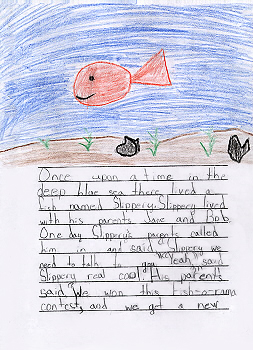 Once upon a time in the
deep blue sea there lived a
fish named Slippery. Slippery lived
with his parents Jane and Bob.
One day Slippery's parents called
him in and said "Slippery we
need to talk to you." "Yeah," said
Slippery real cool. His parents
said "We won this fish-o-rama
contest, and we get a new